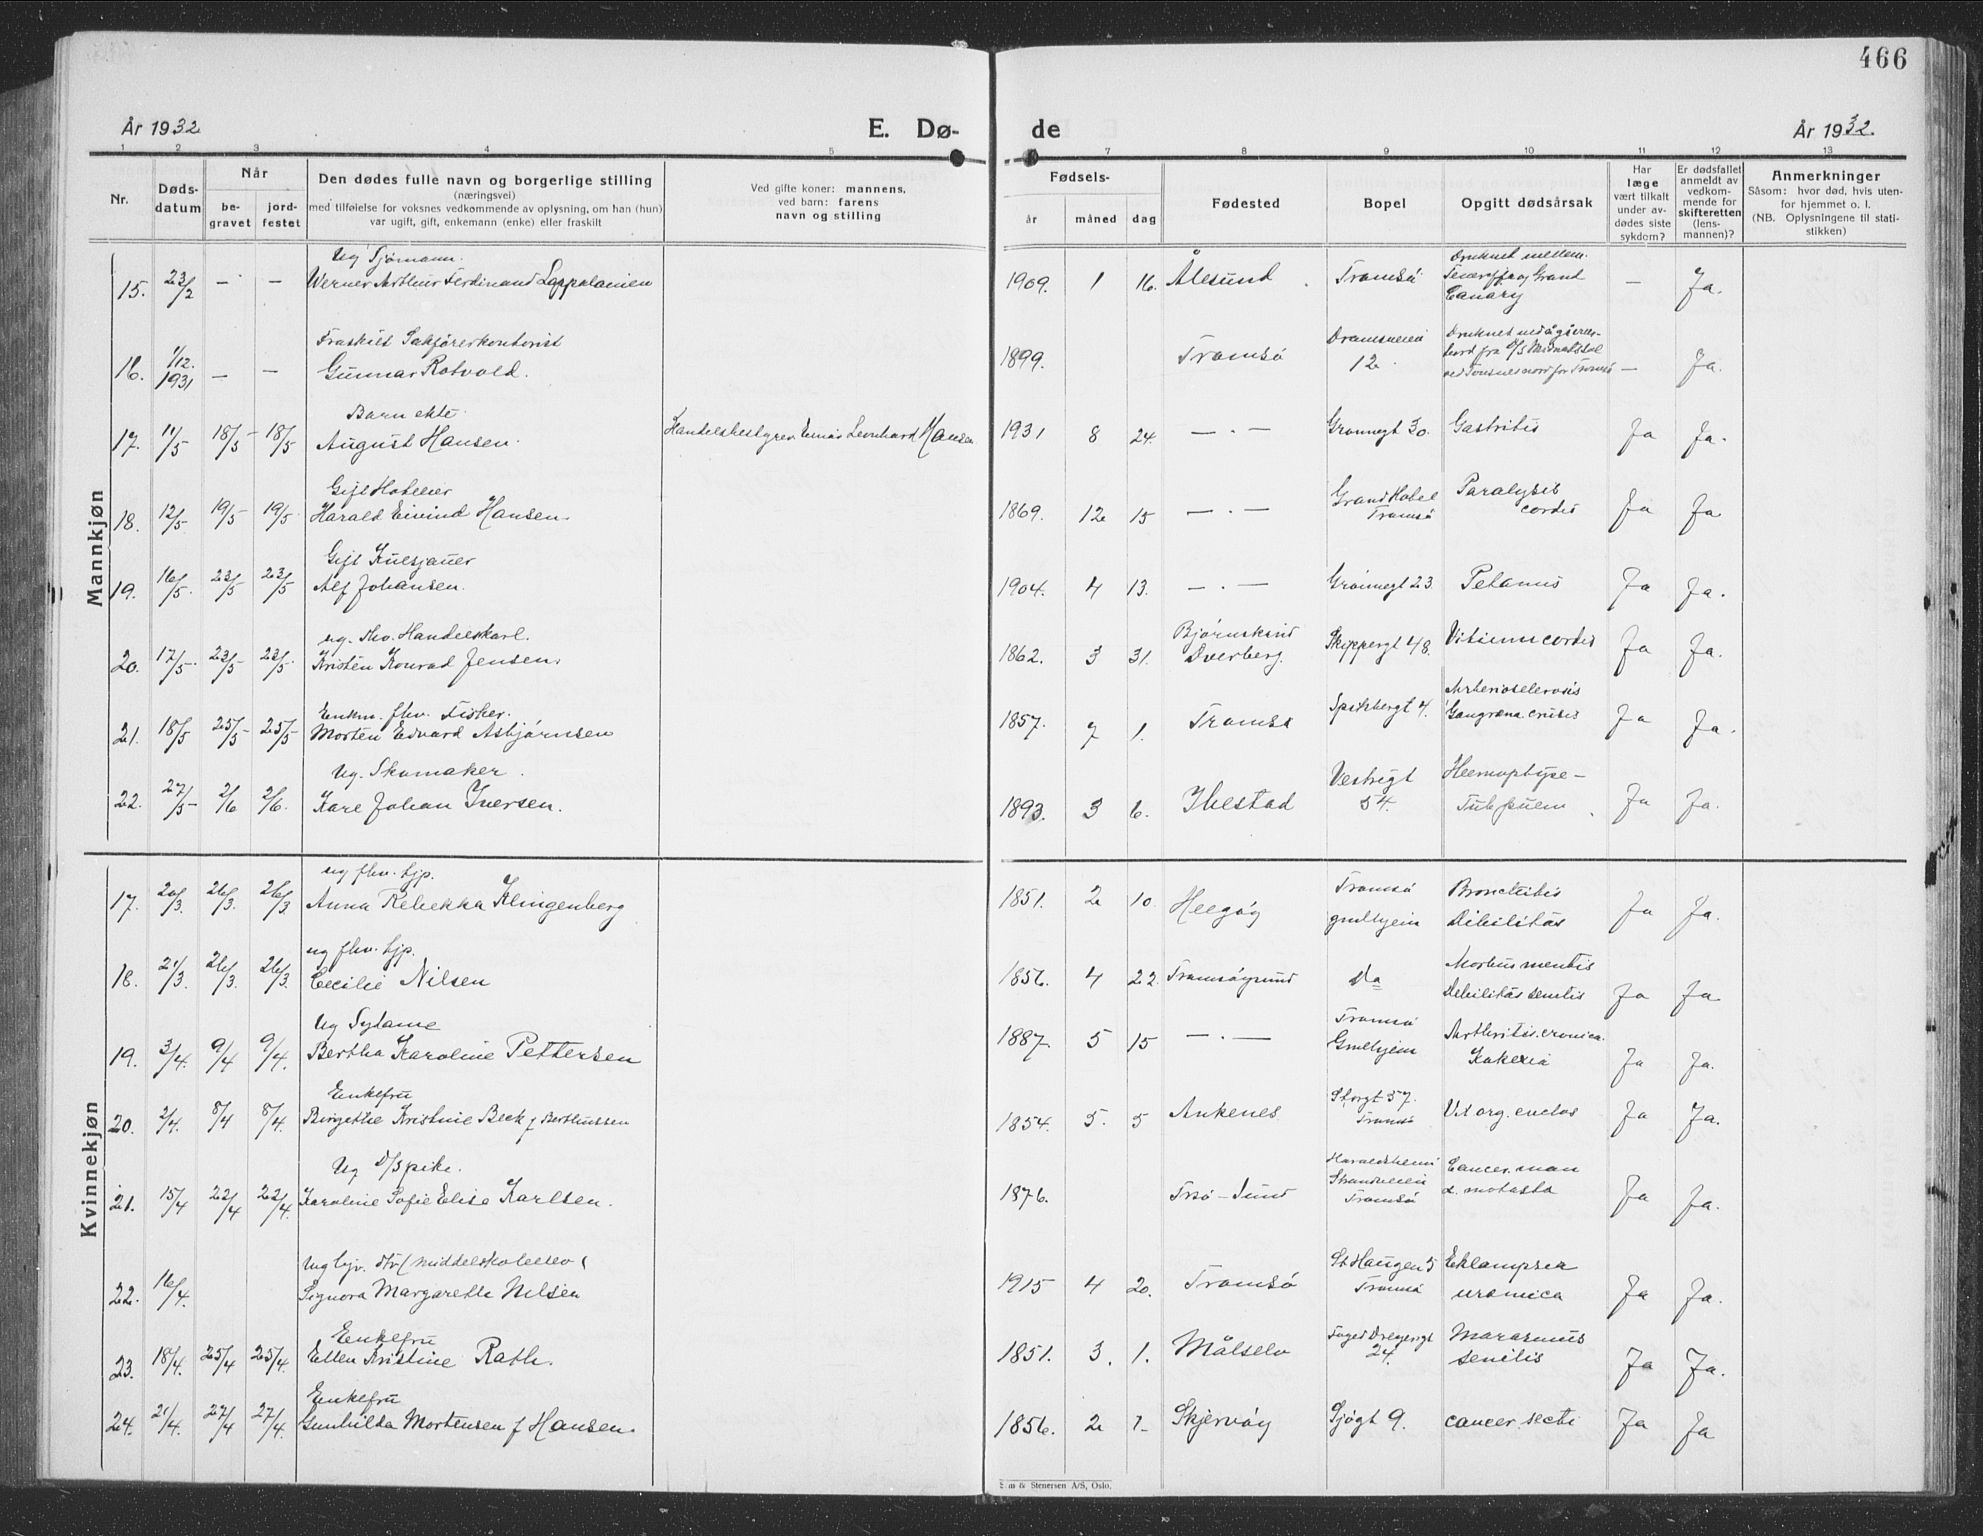 466
År 1932
E. Dø-
de
År 1932.
1 2 3 4 5 7 8 9 10 11 12 13
Nr.
Døds-
datum
Når
be-
gravet
jord-
festet
Den dødes fulle navn og borgerlige stilling
(næringsvei)
med tilføielse for voksnes vedkommende av oplysning, om han (hun)
var ugift, gift, enkemann (enke) eller fraskilt
Ved gifte koner: mannens,
ved barn: farens
navn og stilling
Fødsels-
år
måned
dag
Fødested
Bopel
Opgitt dødsårsak
Har
læge
vært tilkalt
under av-
dødes siste
sykdom?
Er dødsfallet
anmeldt av
vedkom-
mende for
skifteretten
(lens-
mannen)?
Anmerkninger
Såsom: hvor død, hvis uten-
for hjemmet o. l.
(NB. Oplysningene til stati-
stikken)
Mannkjøn
Ug Sjømann.
15. 23/2 - - Werner Arthur Ferdinand Lappalainen 1909. 1 16. Ålesund Tromsö Druknet mellem Teneriffa og Grand Canary - Ja.
Fraskilt Sakførerkontorist
16. 1/12. 1931 - - Gunnar Rotvold. 1899. Tromsø Dramsveien 12 Ja.
Barn ekte
17. 11/5 18/5 - 18/5 August Hansen. Handelsbestyrer Leonhard Hansen 1931 8 24. - . - Grønnegt 30. Gastritis Ja Ja.
Gift Hotelier
18. 12/5 19/5 19/5. Harald Eivind Hansen. 1869. 12 15 - . - Grand Hotel Tromsø Paralysis cordis Ja Ja
Gift
19. 16/5. 23/5 23/5 Alf Johansen. 1904. 4 13. - . - Grønnegt 23. Tetanus Ja Ja.
ug. fhv. Handelskarl.
20. 17/5. 23/5 23/5. Kristen Konrad Jensen. 1862. 3 31. Dverberg. Skippergt 48. Vitium cordis Ja Ja.
Enkm. fhv. Fisker.
21. 18/5 25/5 - 25/5 Morten Edvard Asbjørnsen 1857. 7 1. Tromsø 4. Arteriosclerosis Gangræna cruris Ja Ja.
Ug. Skomaker.
22. 27/5 - 2/6 2/6. Kare Johan Iversen. 1893. 3 6. Ibestad Vestregt 54. Ja Ja.
Kvinnekjøn
ug fhv. tjp.
17. 20/3. 26/3. 26/3 Anna Rebekka Klingenberg 1851. 2 10. Helgøy Tromsø gmlhjem Bronchitis Debilitas Ja Ja.
ug fhv. tjp.
18. 21/3. 26/3. 26/3. Cecilie Nilsen 1856. 4 22. Tromsøysund Do Morbus mentis Debilitas senilis Ja Ja
Ug Sydame
19. 3/4. 9/4 9/4. Bertha Karoline Pettersen 1887. 5 15 - . - Tromsø Gmlhjem Arthritis cronica. Kakexia Ja Ja.
Enkefru
20. 2/4. 8/4 8/4. Birgethe Kristine Beck f Berthussen 1854. 5. 5 Ankenes Storgt 57. Tromsø Vit org. cordis Ja Ja.
Ug pike.
21. 15/4 22/4 22/4. Karoline Sofie Elise Karlsen. 1876. Tsø-Sund Haraldsheim Strandveien Tromsø Cancer mam Ja Ja.
22. 16/4. Signora Margarethe Nilsen 1915 4 20. Tromsø St Haugen 5 Tromsø Eklampsia uremica Ja Ja.
Enkefru
23. 18/4. 25/4 25/4. Ellen Kristine Rath. 1851. 3. 1. Målselv 24. Marasmus senilis Ja Ja.
Enkefru
24. 21/4. 27/4 27/4. Gunhilda Mortensen f Hansen. 1856. 2 7 Skjervøy Sjøgt 9. cancer recti Ja Ja
& Stenersen A/S, Oslo.